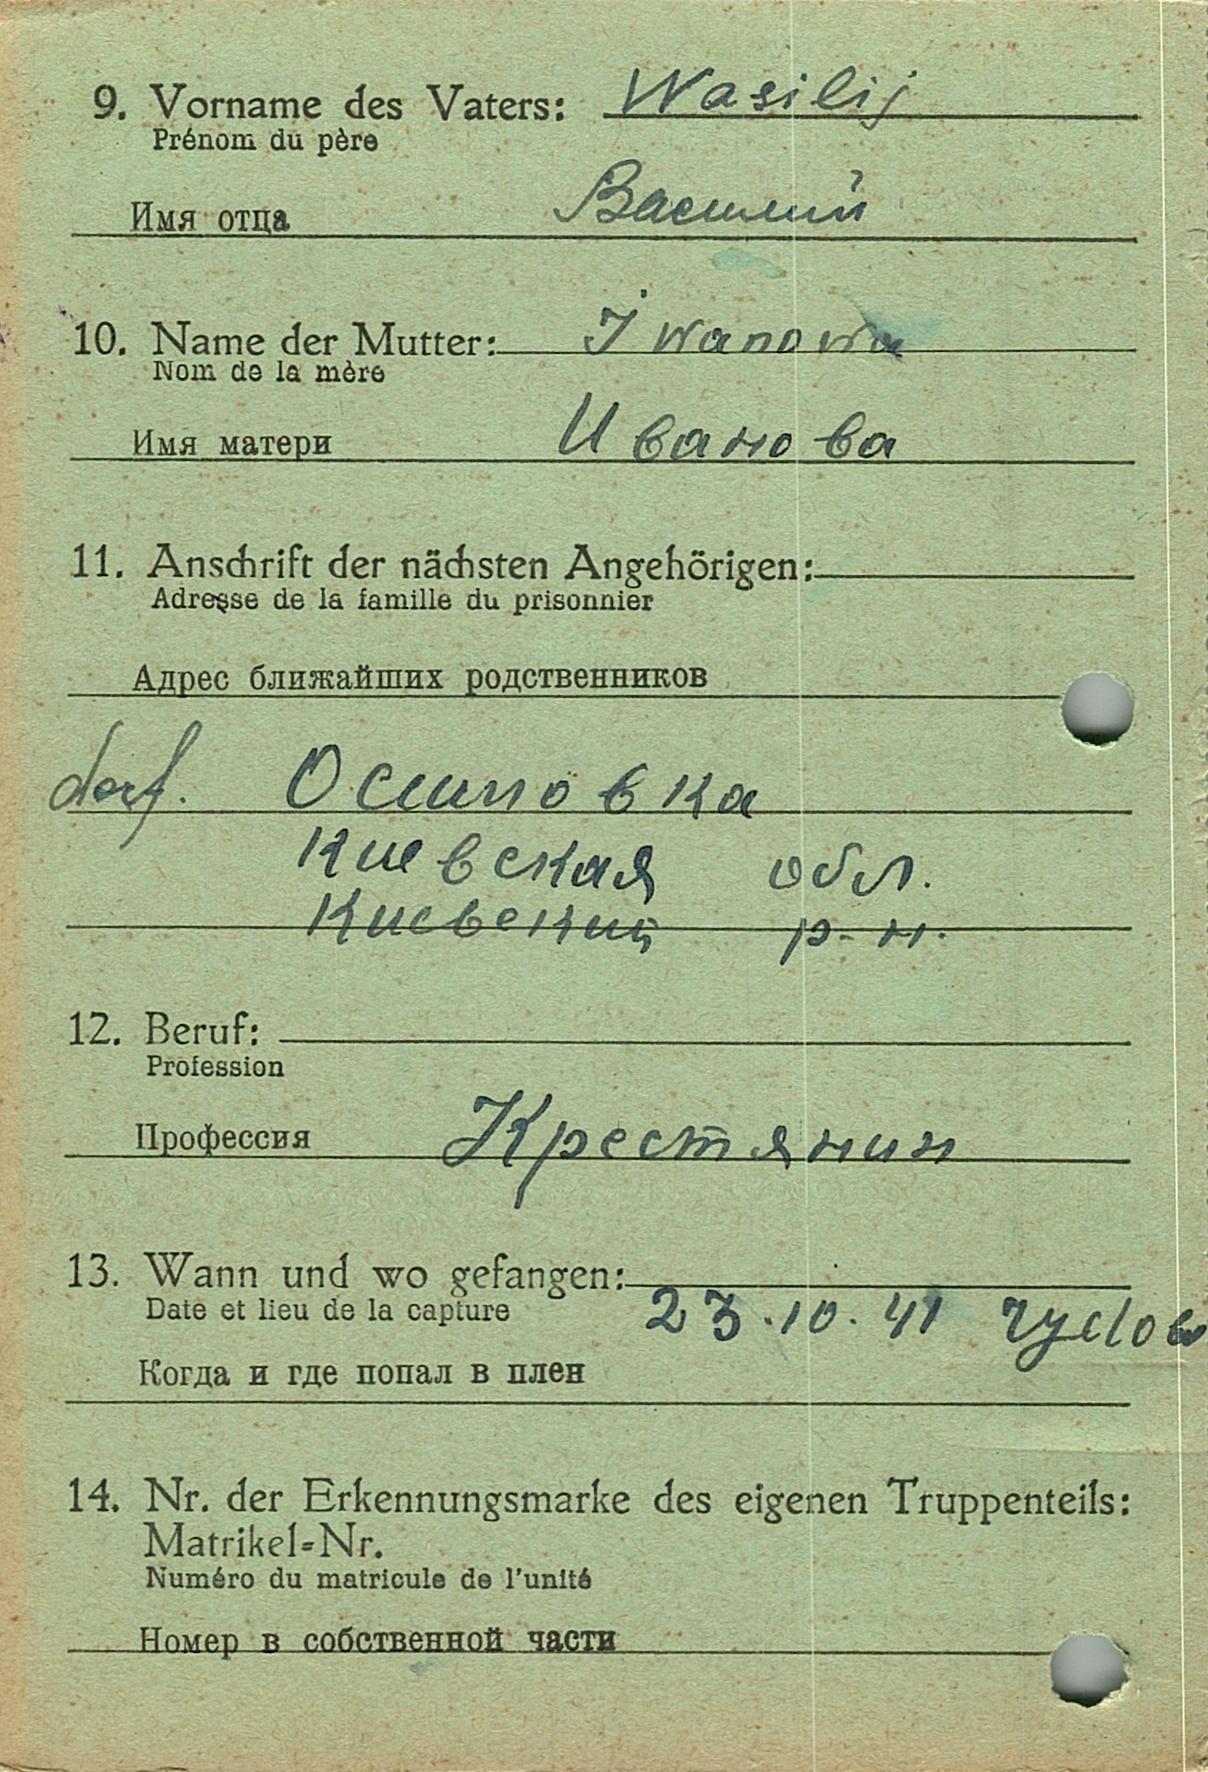 9. Vorname des Vaters: Wasilij
Prénom du père
Имя отца Василий
10. Name der Mutter: Iwanowa
Nom de la mère
Имя матери Иванова
11. Anschrift der nächsten Angehörigen:
Adresse de la famille du prisonnier
Адрес ближайших родственников
dorf. Осиповка
Киевская обл.
Киевский р-н.
12. Beruf:
Profession
Профессия Крестянин
13. Wann und wo gefangen:
Date et lieu de la capture 23.10.41
Когда и где попал в плен
14. Nr. der Erkennungsmarke des eigenen Truppenteils:
Matrikel=Nr.
Numéro du matricule de l'unité
Номер в собственной части